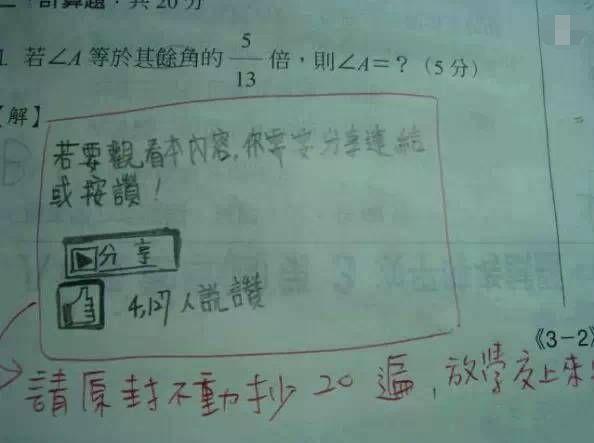 計算題:共20分
1. 若∠A等於其餘角的 5/13 倍,則∠A=?(5分)
【解】
若要觀看本內容,你要寄分享連結
或按讚!
分享
4,127人說讚
《3-2》
請原封不動抄20遍,放學交上來